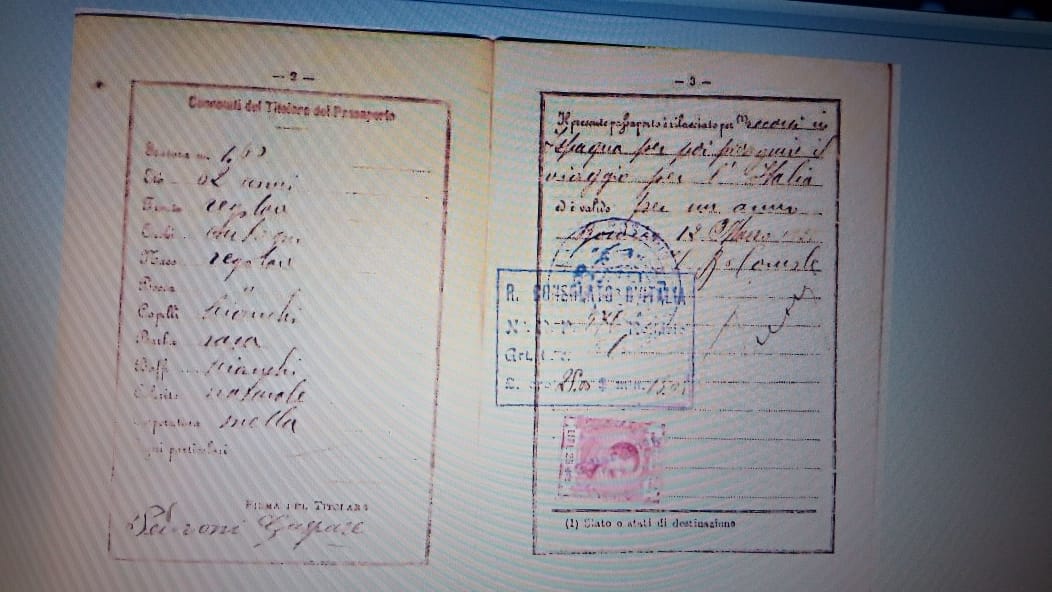 — 2 —
Connotati del Titolare del Passaporto
Statura m. 1,60
Età 62 anni
Fronte regolare
Occhi castagni
Naso regolare
Bocca "
Capelli bianchi
Barba rasa
Baffi bianchi
Colorito naturale
Corporatura snella
Segni particolari
FIRMA DEL TITOLARE
Gaspare
— 3 —
Il presente passaporto è rilasciato per (1) recarsi in
Ispagna per poi proseguire il
viaggio per l'Italia
ed è valido per un anno
12 Marzo
Il Console
R. CONSOLATO D'ITALIA
Art.
25.00
(1) Stato o stati di destinazione